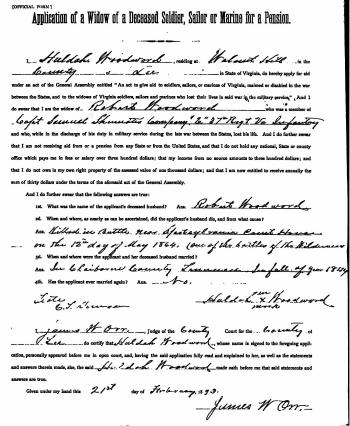 [OFFICIAL FORM]
Application of a Widow of a Deceased Soldier, Sailor or Marine for a Pension.
I, Huldah Woodword, residing at Walnut Hill in the
County of Lee in State of Virginia, do hereby apply for aid
under an act of the General Assembly entitled "An act to give aid to soldiers, sailors, or marines, of Virginia, maimed or disabled in the war
between the States, and to the widows of Virginia soldiers, sailors and marines who lost their lives in said war in the military service," And I
do swear that I am the widow of Robert Woodword who was a member of
Capt Company "37th Regt Va Infantry
and who, while in the discharge of his duty in military service during the late war between the States, lost his life. And I do further swear
that I am not receiving aid from or a pension from any State or from the United States, and that I do not hold any national, State or county
office which pays me in fees or salary over three hundred dollars; that my income from no source amounts to three hundred dollars; and
that I do not own in my own right property of the assessed value of one thousand dollars; and that I am now entitled to receive annually the
sum of thirty dollars under the terms of the aforesaid act of the General Assembly.
And I do further swear that the following answers are true:
1st. What was the name of the applicant's deceased husband? Ans. Robert Woodword
2d. When and where, as nearly as can be ascertained, did the applicant's husband die, and from what cause?
Ans. Killed in Battle near Spotsylvania Court House
on the 12th day of May 1864. (One of the battles of the Wilderness
3d. When and where were the applicant and her deceased husband married?
Ans. In Claiborne County Tennessee In fall of year
4th. Has the applicant ever married again? Ans. No.
Teste
Huldah her x mark Woodword
James W Orr, Judge of the County Court for the County of
Lee do certify that Huldah Woodword, whose name is signed to the foregoing
application, personally appeared before me in open court, and, having the said application fully read and explained to her, as well as the statements
and answers therein made, she, the said Huldah Woodword made oath before me that said statements and
answers are true.
Given under my hand this 21st day of February, 293.
James W Orr.